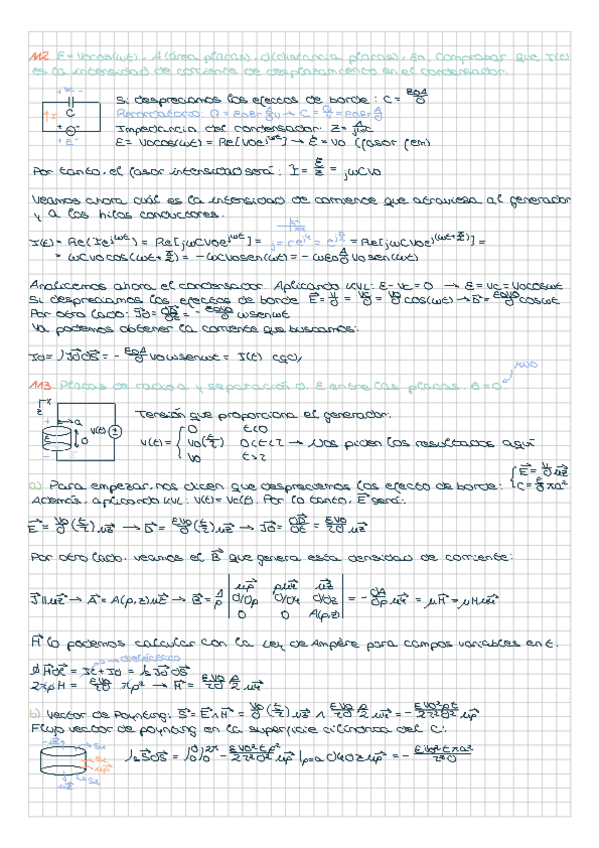 M2. E = Vocos(wt), A(área placas), d(distancia placas), εo. Comprobar que I(t)
es la intensidad de corriente de desplazamiento en el condensador.
Si despreciamos los efectos de borde: C = εoA/d
Recordatorio: Q = εoεr A/d V → C = Q/V = εoεr A/d
Impedancia del condensador: Z = 1/jwC
E = Vocos(wt) = Re[Voe^jwt] → E = Vo (fasor fem)
Por tanto, el fasor intensidad será: I = E/Z = jwCVo
Veamos ahora cuál es la intensidad de corriente que atraviesa al generador
y a los hilos conductores.
I(t) = Re(Ie^jwt) = Re[jwCVoe^jwt] = = Re[wCVoe^j(wt+π/2)] =
= wCVocos(wt+π/2) = -wCVosen(wt) = -wεo A/d Vosen(wt)
Analicemos ahora el condensador. Aplicando KVL: E - Vc = 0 → E = Vc = Vocoswt
Si despreciamos los efectos de borde
Por otro lado: Jd = ∂D/∂t = - εoVo/d wsenwt
Ya podemos obtener la corriente que buscamos:
Id = ∫JddS = - εoA/d Vowsenwt = I(t) cqd//
M3. Placas de radio a y separación d. E entre las placas. σ=0
Tensión que proporciona el generador:
V(t) = { 0 t<0
Vo(t/τ) 0<t<τ → Nos piden los resultados aquí
Vo t>τ
a) Para empezar, nos dicen que despreciemos los efecto de borde:
Además, aplicando KVL: V(t) = Vc(t). Por lo tanto, E será:
E = Vo/d (t/τ) uz → D = εVo/d (t/τ) uz → Jd = ∂D/∂t = εVo/τd uz
Por otro lado, veamos el B que genera esta densidad de corriente:
J||uz → A = A(ρ,z)uz → B = 1/ρ | uρ ρuφ uz
∂/∂ρ ∂/∂φ ∂/∂z
0 0 A(ρ,z) | = -∂A/∂ρ uφ = μH = μHuφ
H lo podemos calcular con la Ley de Ampère para campos variables en t.
dieléctrico
∮Hdl = Ic + Id = ∫s JddS
2πρH = εVo/τd πρ² → H = εVo/τd ρ/2 uφ
b) Vector de Poynting: S = E∧H = Vo/d (t/τ) uz ∧ εVo/τd ρ/2 uφ = - εVo²ρt/2τ²d² uρ
Flujo vector de poynting en la superficie cilíndrica del C: